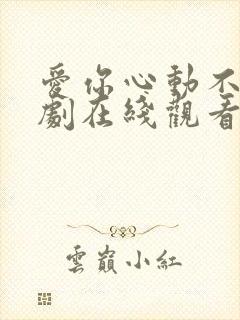 愛你心動不
劇在綫觀看
雲巔小紅